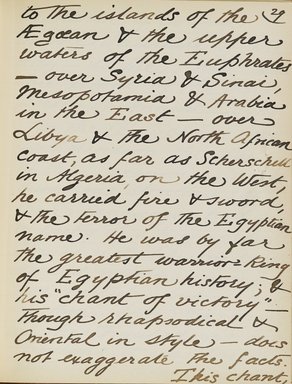 to the islands of the 24
Ægœan & the upper
waters of the Euphrates
— over Syria & Sinai,
Mesopotamia & Arabia
in the East — over
Libya & the North African
coast, as far as Scherschell
in Algeria, on the West,
he carried fire & sword,
& the terror of the Egyptian
name. He was by far
the greatest warrior-King
of Egyptian history; &
his "chant of victory" —
though rhapsodical &
Oriental in style — does
not exaggerate the facts.
This chant